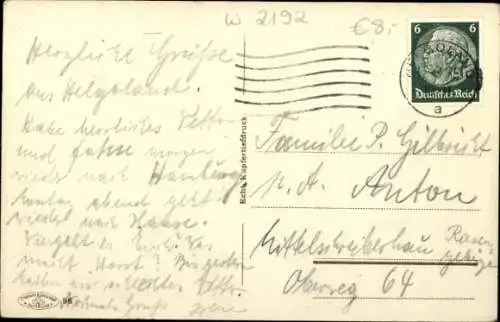 W 2192
€8.-
Herzliche Grüße
aus Helgoland.
Habe herrliches Wetter
und fahre morgen
wieder nach Hamburg
abend geht's
wieder nach Hause.
Wie geht es Euch? Was
macht Horst? Bis gestern
hatten wir schlechtes Wetter
Nochmals Gruß
Echt Kupfertiefdruck
6 6
Deutsches Reich
HELGOLAND
a
Familie P. Gilbricht
p. A. Anton
Mittelschreiberhau
Riesengebirge
Oberweg 64